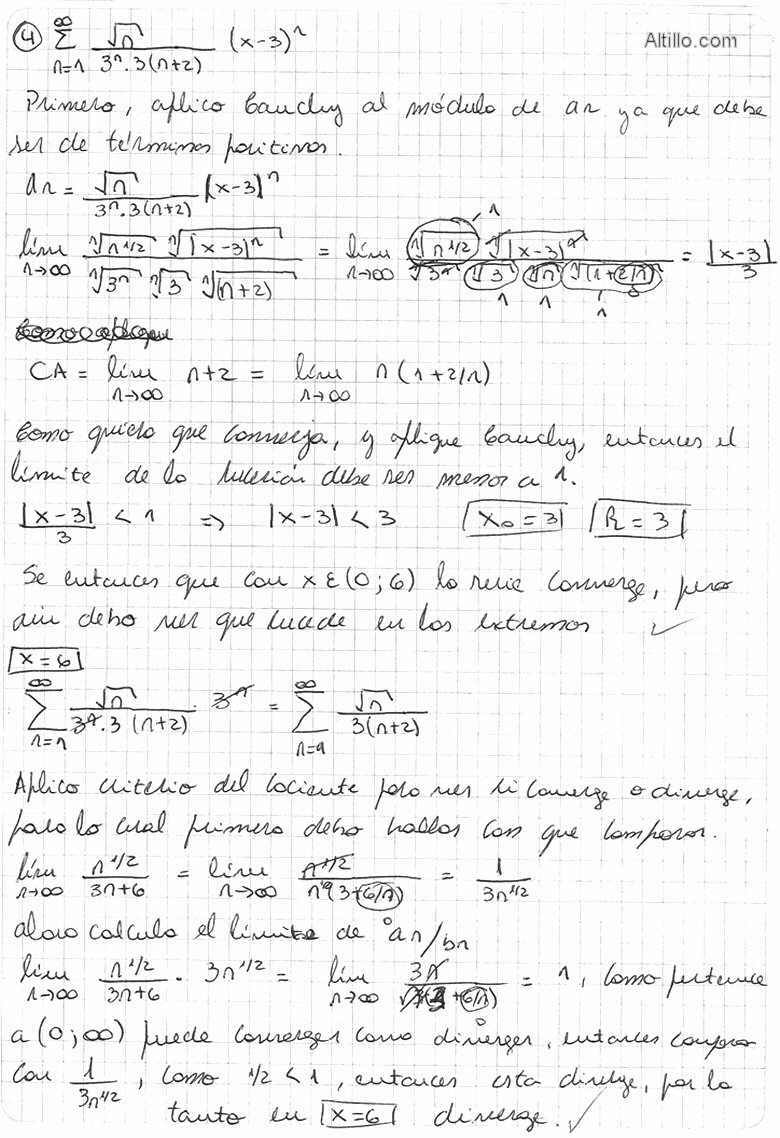 ④ ∞∑n=1 √n / 3ⁿ.3(n+2) (x-3)ⁿ
Altillo.com
Primero, aplico Cauchy al módulo de an ya que debe
ser de términos positivos.
an = √n / 3ⁿ.3(n+2) |x-3|ⁿ
lím n→∞ ⁿ√n^1/2 ⁿ√|x-3|ⁿ / ⁿ√3ⁿ ⁿ√3 ⁿ√(n+2) = lím n→∞ ⁿ√n^1/2 ⁿ√|x-3|ⁿ / ⁿ√3ⁿ ⁿ√3 ⁿ√n ⁿ√(1+2/n) = |x-3| / 3
CA = lím n→∞ n+2 = lím n→∞ n(1+2/n)
Como quiero que converja, y aplique Cauchy, entonces el
límite de la sucesión debe ser menor a 1.
|x-3| / 3 < 1 ⇒ |x-3| < 3 X₀=3 R=3
Se entonces que con x ε (0;6) la serie converge, pero
aún debo ver que sucede en los extremos ✓
x=6
∞∑n=1 √n / 3ⁿ.3(n+2) 3ⁿ = ∞∑n=1 √n / 3(n+2)
Aplico criterio del cociente para ver si converge o diverge,
para lo cual primero debo hallar con que comparar.
lím n→∞ n^1/2 / 3n+6 = lím n→∞ n^1/2 / n(3+6/n) = 1 / 3n^1/2
ahora calculo el límite de an/bn
lím n→∞ n^1/2 / 3n+6 . 3n^1/2 = lím n→∞ 3n / (3+6/n) = 1, como pertenece
a (0;∞) puede converger como diverger, entonces comparo
con 1 / 3n^1/2, como 1/2 < 1, entonces esta diverge, por lo
tanto en x=6 diverge. ✓